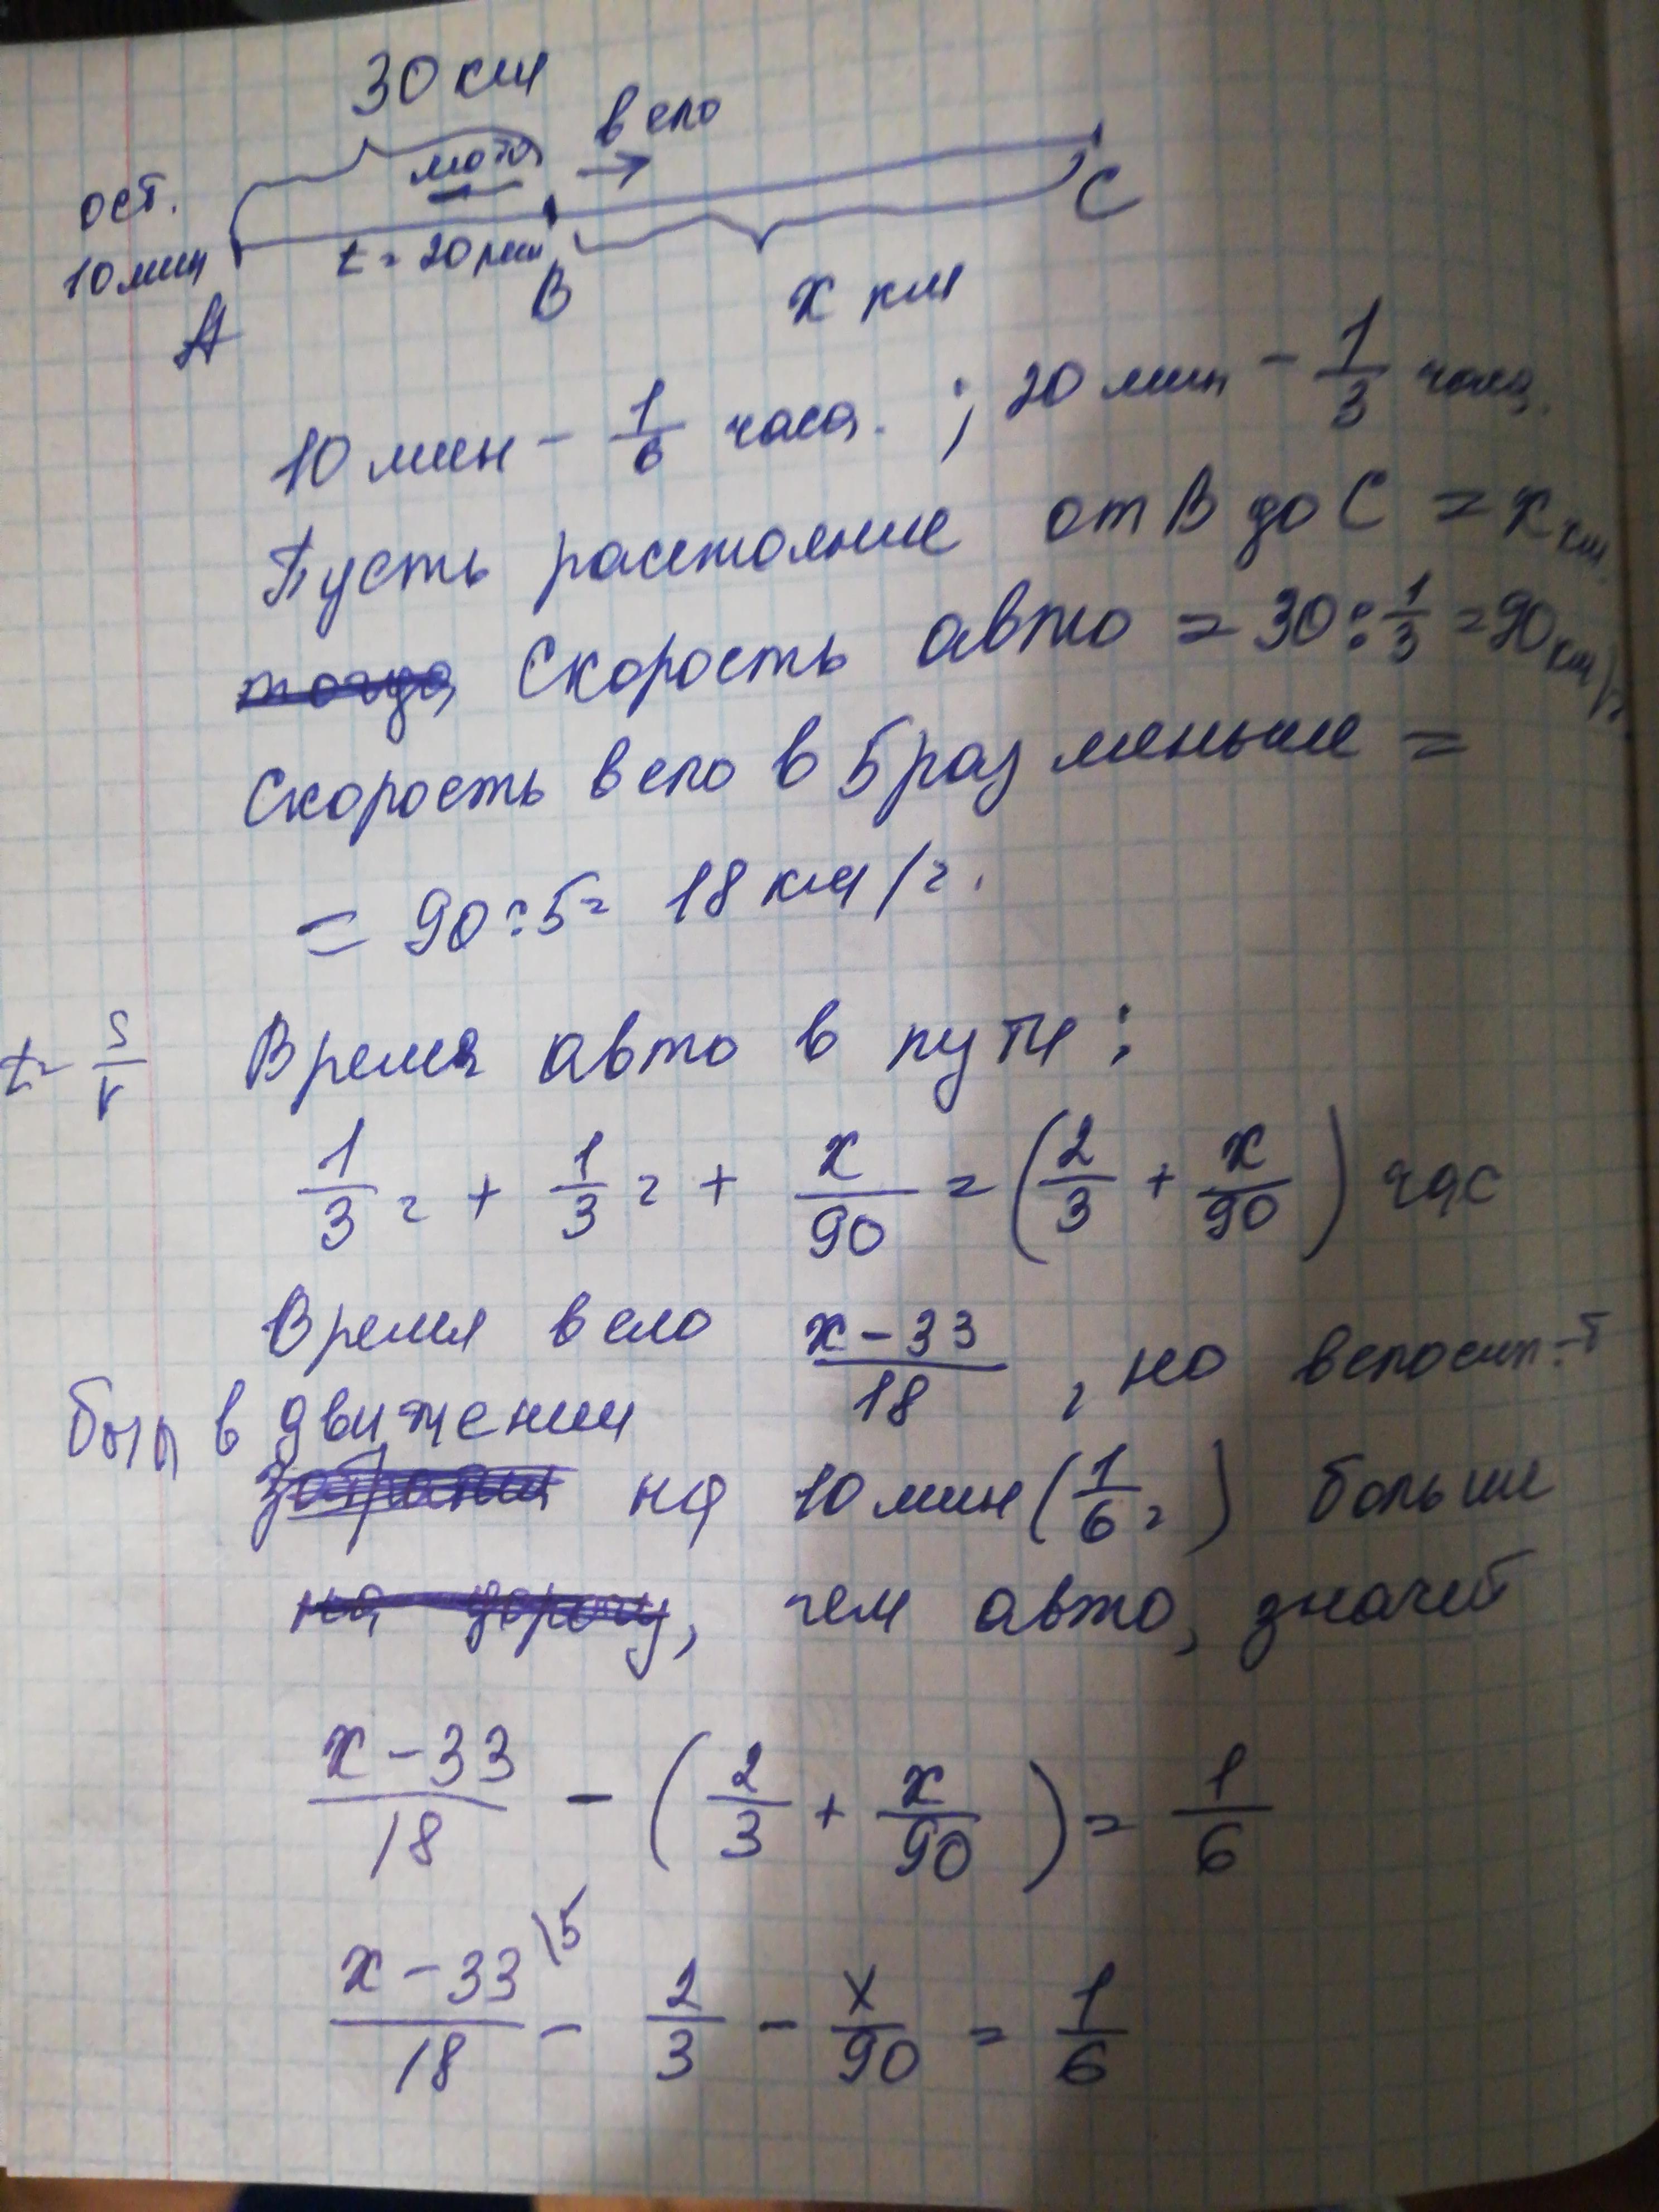 30 км
вело
мото
ост.
10 мин
t = 20 мин
A
B
C
x км
10 мин - 1/6 часа. ; 20 мин - 1/3 часа.
Пусть расстояние от В до С = x км.
тогда Скорость авто = 30 : 1/3 = 90 км/ч.
Скорость вело в 5 раз меньше =
= 90 : 5 = 18 км/ч.
t = S/V
Время авто в пути:
1/3 ч + 1/3 ч + x/90 = (2/3 + x/90) час
Время вело (x - 33)/18, но велосип-т
был в движении
на 10 мин (1/6 ч) больше
на дорогу, чем авто, значит
(x - 33)/18 - (2/3 + x/90) = 1/6
(x - 33)/18 \5 - 2/3 - x/90 = 1/6